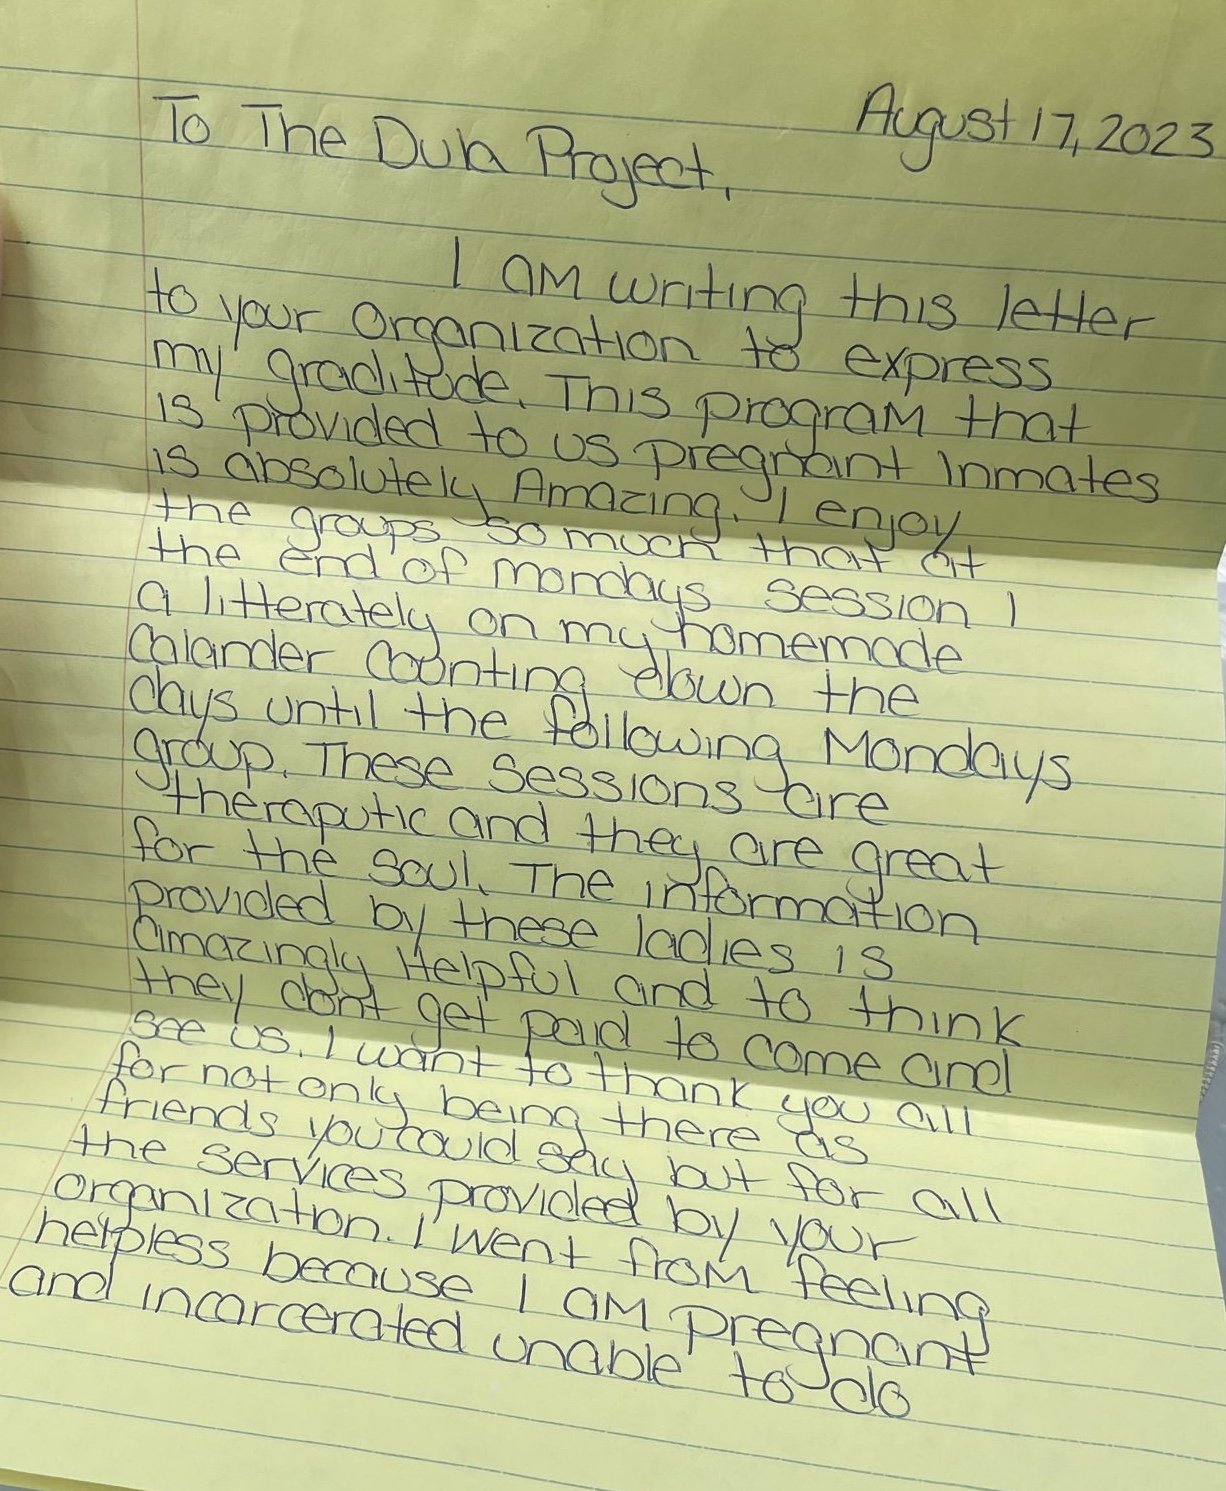 August 17, 2023
To The Dula Project,
I am writing this letter
to your organization to express
my graditude. This program that
is provided to us pregnant inmates
is absolutely Amazing. I enjoy
the groups so much that at
the end of mondays session I
a litterately on my homemade
calander counting down the
days until the following Mondays
group. These sessions are
theraputic and they are great
for the soul. The information
provided by these ladies is
amazingly Helpful and to think
they dont get paid to come and
see us. I want to thank you all
for not only being there as
friends you could say but for all
the services provided by your
organization. I went from feeling
helpless because I am pregnant
and incarcerated unable to do